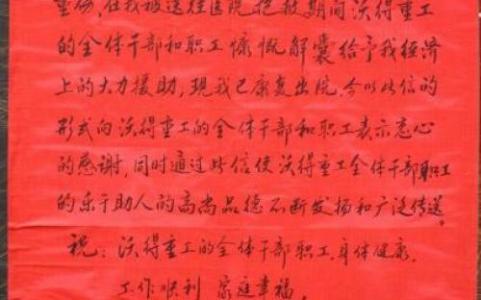 重伤，在我被送往医院抢救期间沃得重工
的全体干部和职工慷慨解囊给予我经济
上的大力援助，现我已康复出院，今以此信的
形式向沃得重工的全体干部和职工表示忠心
的感谢，同时通过此信使沃得重工全体干部职工
的乐于助人的高尚品德不断发扬和广泛传送。
祝：沃得重工的全体干部职工，身体健康，
工作顺利 家庭幸福。